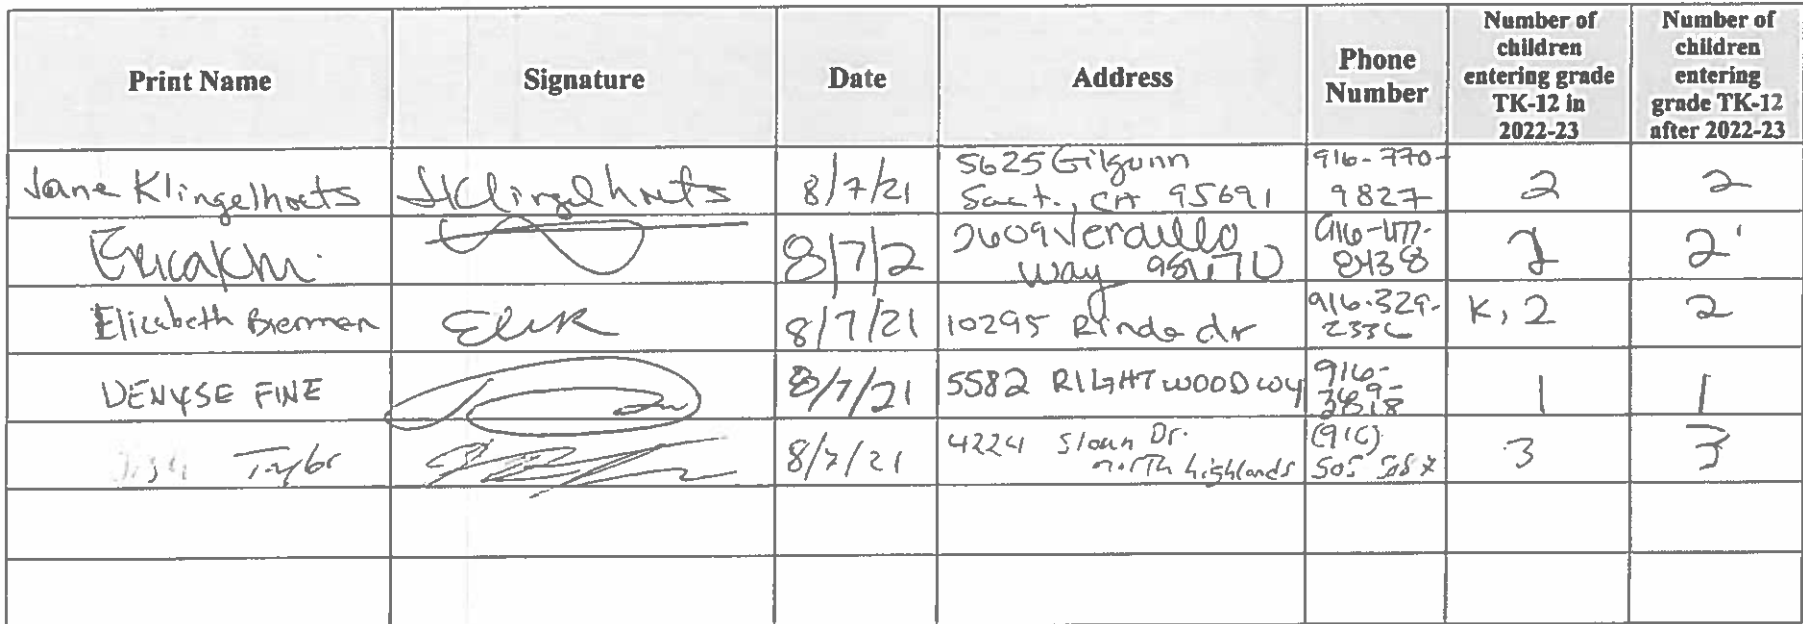 Print Name
Signature
Date
Address
Phone
Number
Number of
children
entering grade
TK-12 in
2022-23
Number of
children
entering
grade TK-12
after 2022-23
Jane Klingelhoets
8/7/21
5625 Gilgunn
Sact., CA 95691
916-770-
9827
2
2
8/7/2
Way
2
2
Elizabeth Brennen
8/7/21
10295 Rinda dr
916-329-
K, 2
2
DENYSE FINE
8/7/21
5582 RIGHTWOOD WY
916-
1
1
Taylor
8/7/21
42241 Sloan Dr.
north highlands
(916)
505
3
3